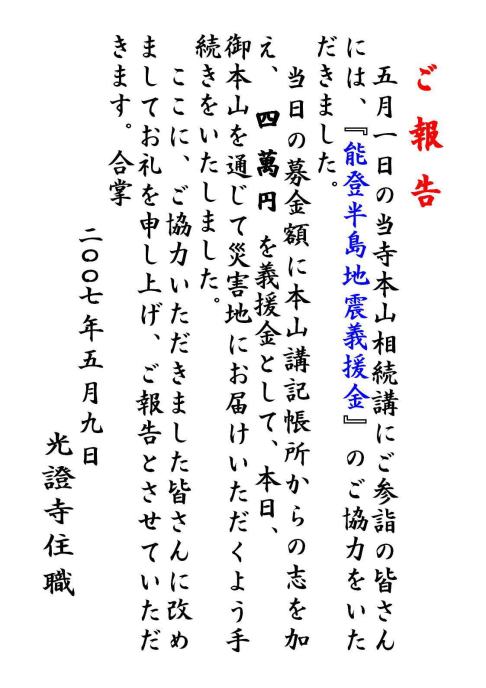 ご報告
五月一日の当寺本山相続講にご参詣の皆さん
には、『能登半島地震義援金』のご協力をいた
だきました。
当日の募金額に本山講記帳所からの志を加
え、四萬円を義援金として、本日、
御本山を通じて災害地にお届けいただくよう手
続きをいたしました。
ここに、ご協力いただきました皆さんに改め
ましてお礼を申し上げ、ご報告とさせていただ
きます。合掌
二〇〇七年五月九日
光證寺住職